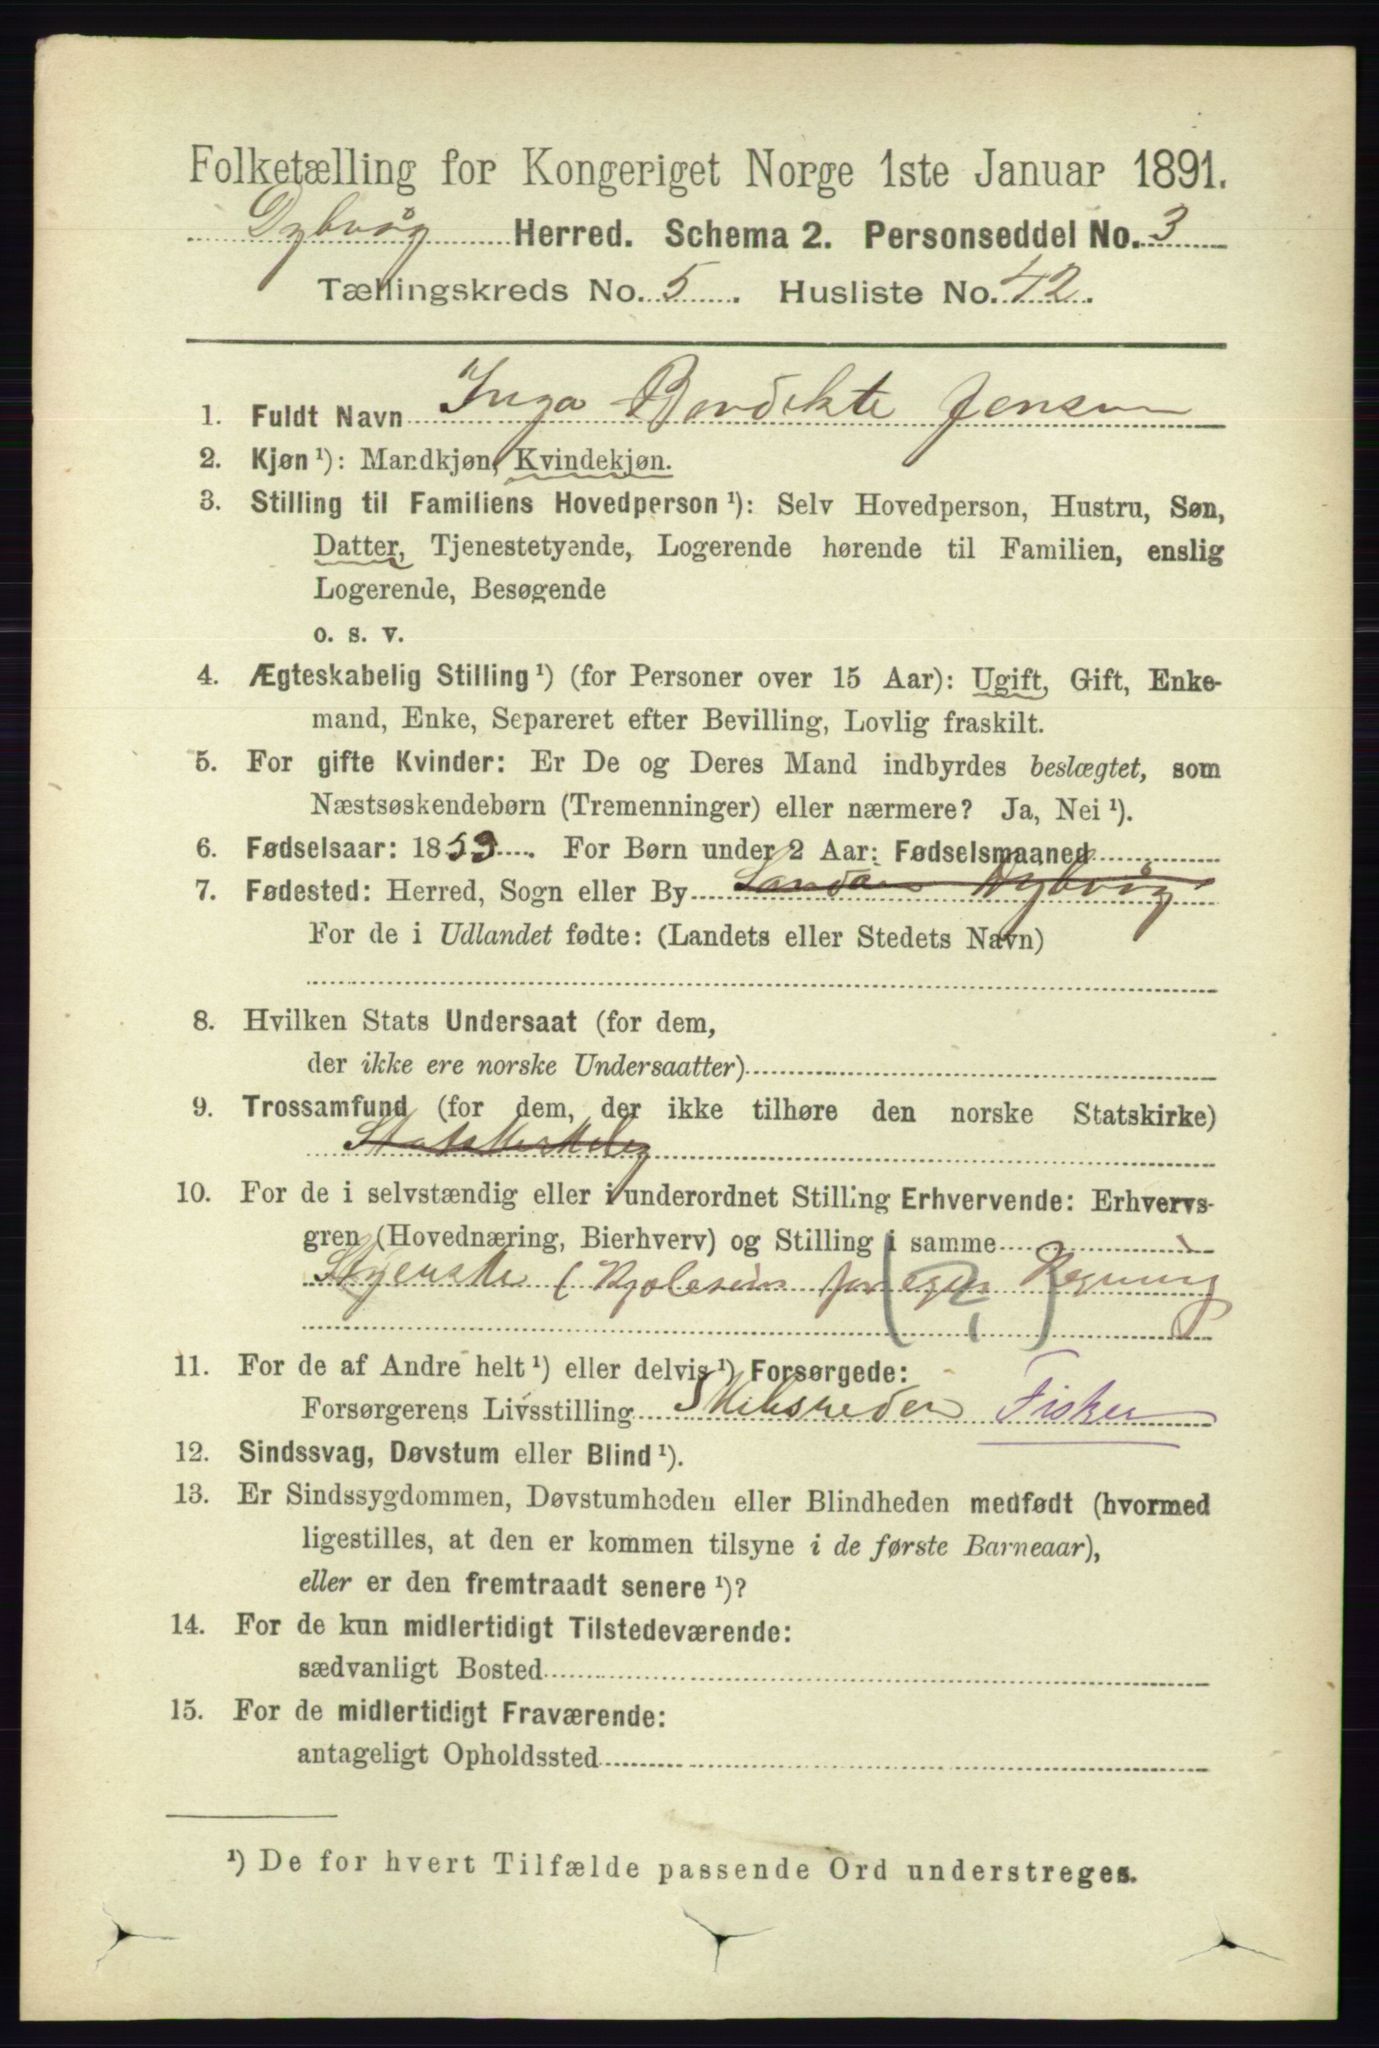 Folketælling for Kongeriget Norge 1ste Januar 1891.
Dybvåg Herred. Schema 2. Personseddel No. 3
Tællingskreds No. 5. Husliste No. 42.
1. Fuldt Navn Inga Bendikte Jensen
2. Kjøn ¹): Mandkjøn, Kvindekjøn.
3. Stilling til Familiens Hovedperson ¹): Selv Hovedperson, Hustru, Søn,
Datter, Tjenestetyende, Logerende hørende til Familien, enslig
Logerende, Besøgende
o. s. v.
4. Ægteskabelig Stilling ¹) (for Personer over 15 Aar): Ugift, Gift, Enke-
mand, Enke, Separeret efter Bevilling, Lovlig fraskilt.
5. For gifte Kvinder: Er De og Deres Mand indbyrdes beslægtet, som
Næstsøskendebørn (Tremenninger) eller nærmere? Ja, Nei ¹).
6. Fødselsaar: 1853. For Børn under 2 Aar: Fødselsmaaned
7. Fødested: Herred, Sogn eller By Dybvåg
For de i Udlandet fødte: (Landets eller Stedets Navn)
8. Hvilken Stats Undersaat (for dem,
der ikke ere norske Undersaatter)
9. Trossamfund (for dem, der ikke tilhøre den norske Statskirke)
10. For de i selvstændig eller i underordnet Stilling Erhvervende: Erhvervs-
gren (Hovednæring, Bierhverv) og Stilling i samme
( for (egen Regning
11. For de af Andre helt ¹) eller delvis ¹) Forsørgede:
Forsørgerens Livsstilling Skibsreder Fisker
12. Sindssvag, Døvstum eller Blind ¹).
13. Er Sindssygdommen, Døvstumheden eller Blindheden medfødt (hvormed
ligestilles, at den er kommen tilsyne i de første Barneaar),
eller er den fremtraadt senere ¹)?
14. For de kun midlertidigt Tilstedeværende:
sædvanligt Bosted
15. For de midlertidigt Fraværende:
antageligt Opholdssted
¹) De for hvert Tilfælde passende Ord understreges.